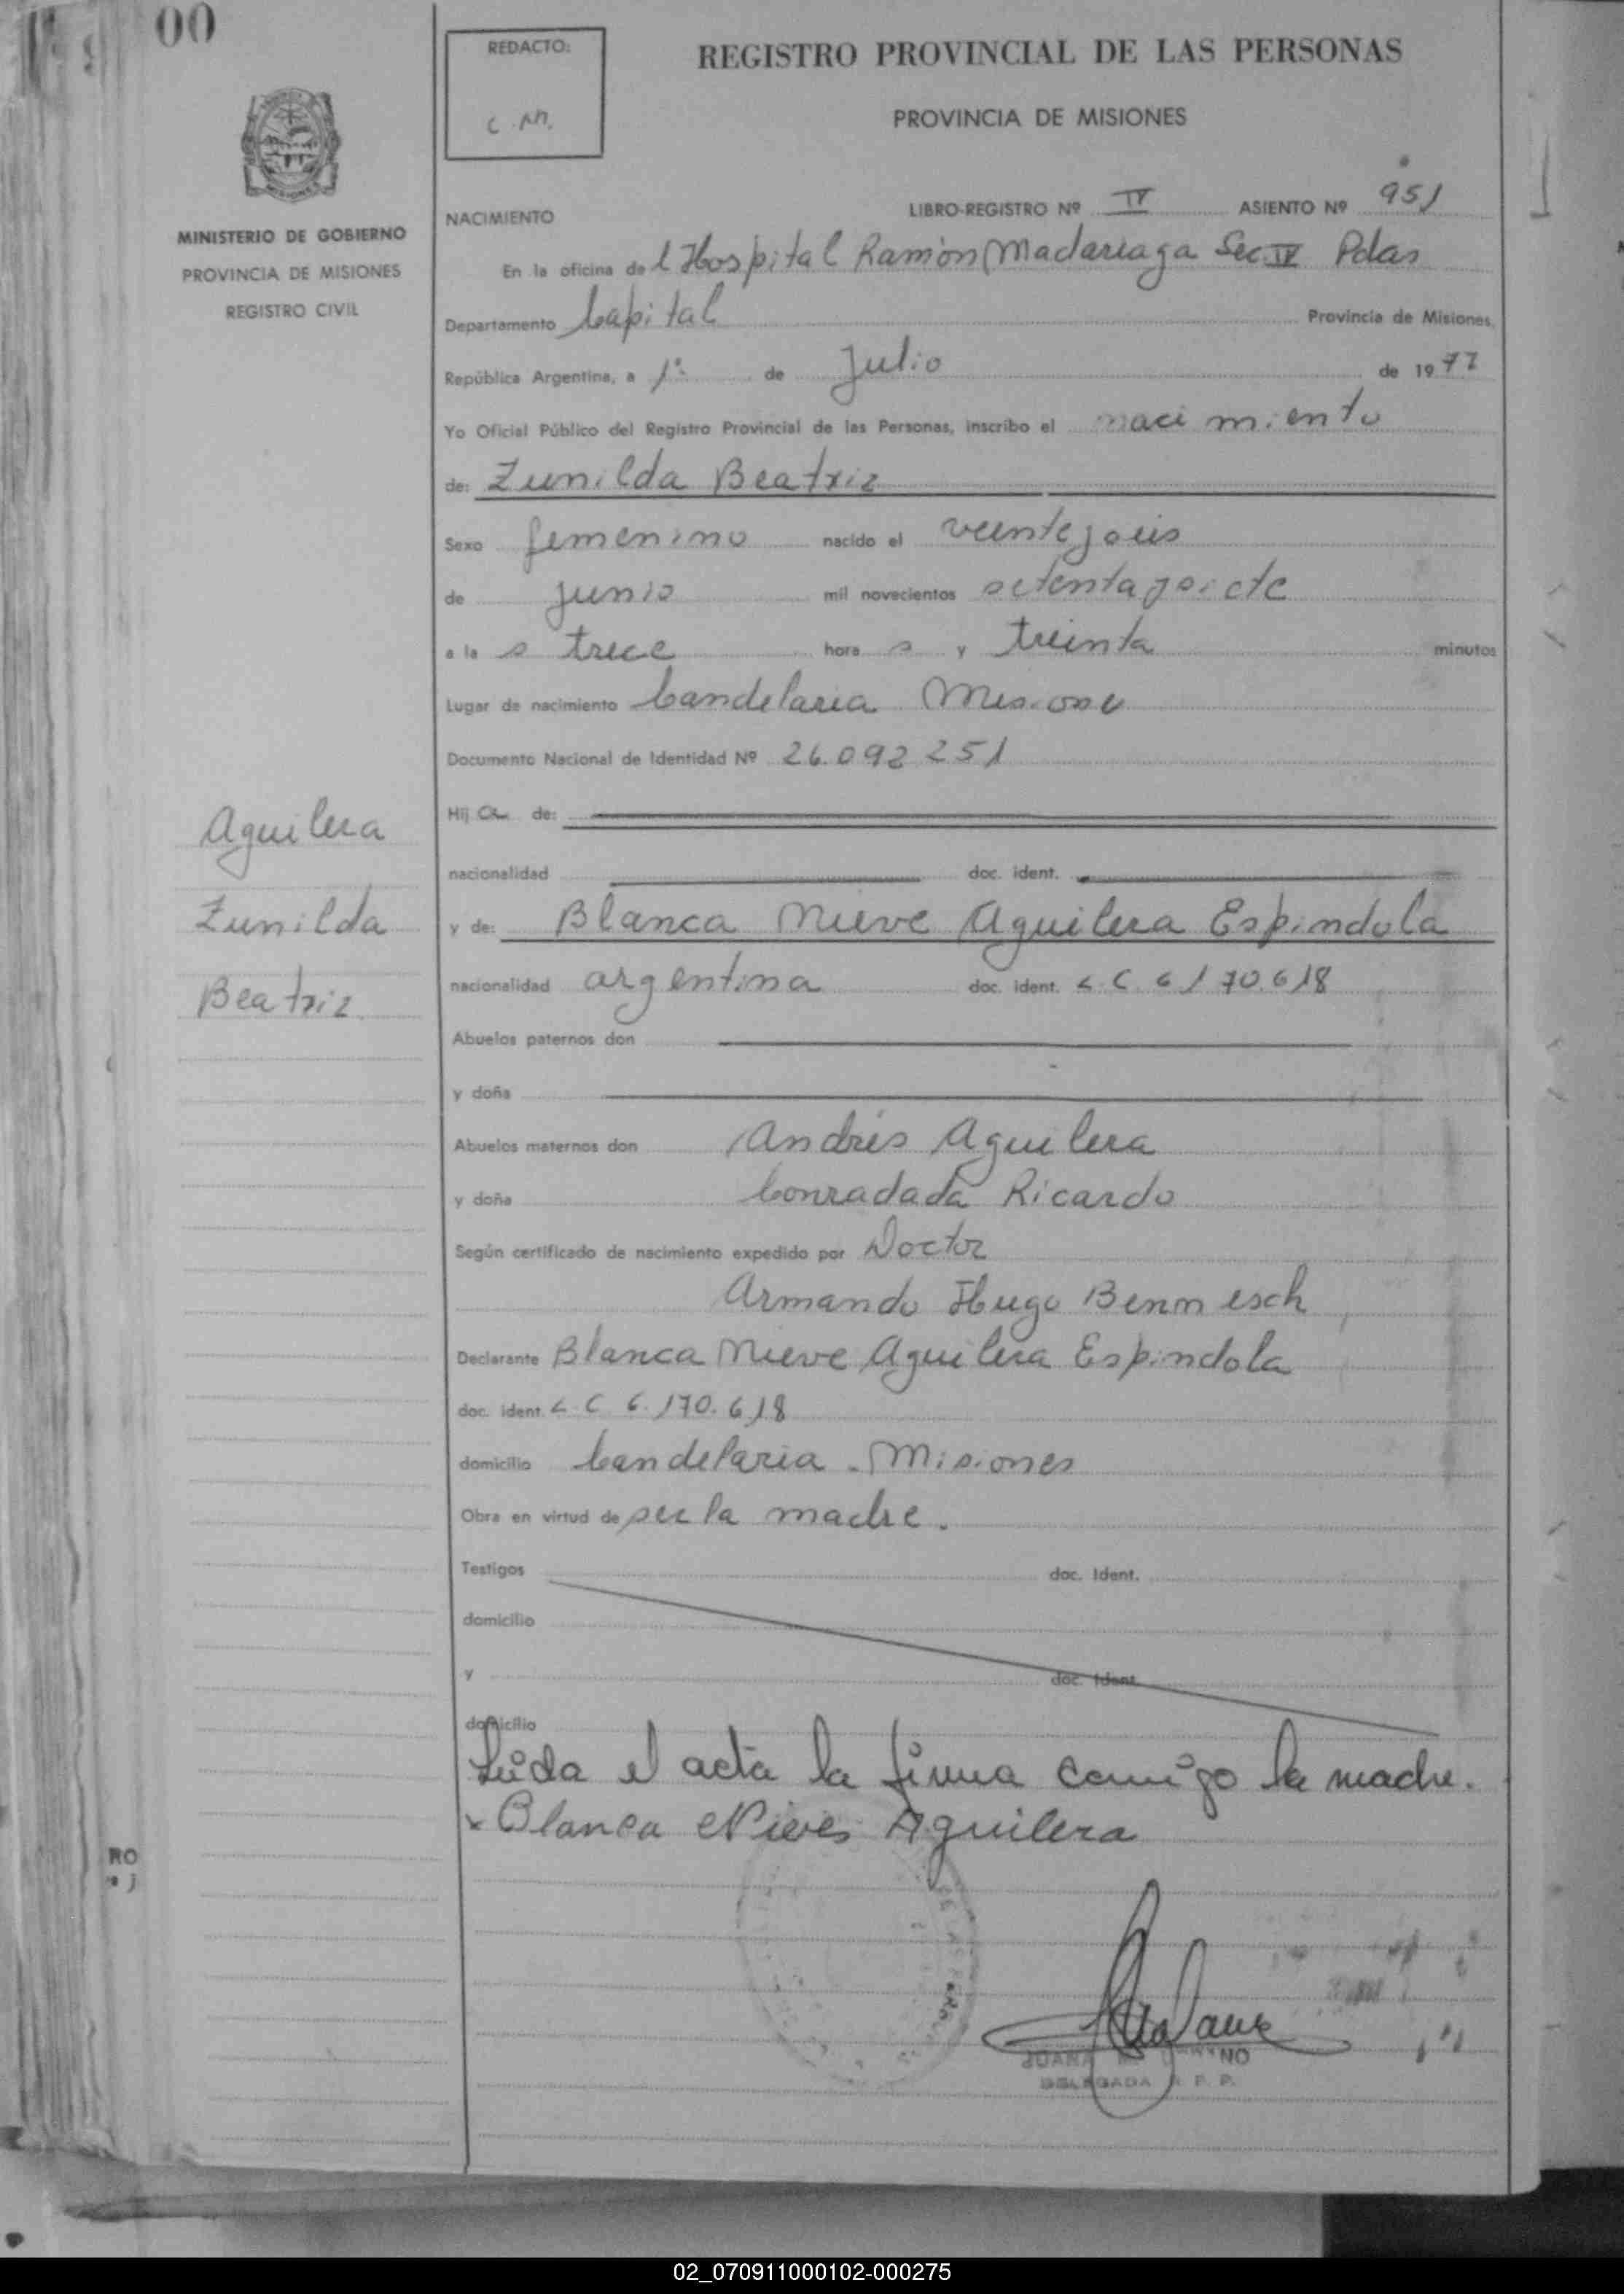 00
REDACTO:
C.M.
REGISTRO PROVINCIAL DE LAS PERSONAS
PROVINCIA DE MISIONES
MINISTERIO DE GOBIERNO
PROVINCIA DE MISIONES
REGISTRO CIVIL
NACIMIENTO
LIBRO-REGISTRO Nº IV ASIENTO Nº 951
En la oficina de l Hospital Ramón Madariaga Sec. IV Pdas
Departamento Capital Provincia de Misiones,
República Argentina, a 1º de Julio de 1977
Yo Oficial Público del Registro Provincial de las Personas, inscribo el nacimiento
de: Zunilda Beatriz
Sexo femenino nacido el veinteseis
de junio mil novecientos setentaysiete
a la s trece hora s y treinta minutos
Lugar de nacimiento Candelaria Misiones
Documento Nacional de Identidad Nº 26.092.251
Hij a de:
nacionalidad doc. ident.
y de: Blanca Nieve Aguilera Espindola
nacionalidad argentina doc. ident. L.C 6.170.618
Abuelos paternos don
y doña
Abuelos maternos don Andrés Aguilera
y doña Conradada Ricardo
Según certificado de nacimiento expedido por Doctor
Armando Hugo Benmesch
Declarante Blanca Nieve Aguilera Espindola
doc. ident. L.C 6.170.618
domicilio Candelaria - Misiones
Obra en virtud de ser la madre.
Testigos doc. Ident.
domicilio
y doc. Ident.
domicilio
Leída el acta la firma conmigo la madre.
x Blanca Nieves Aguilera
Aguilera
Zunilda
Beatriz
RO
JUANA
NO
DELEGADA R. P. P.
02_070911000102-000275